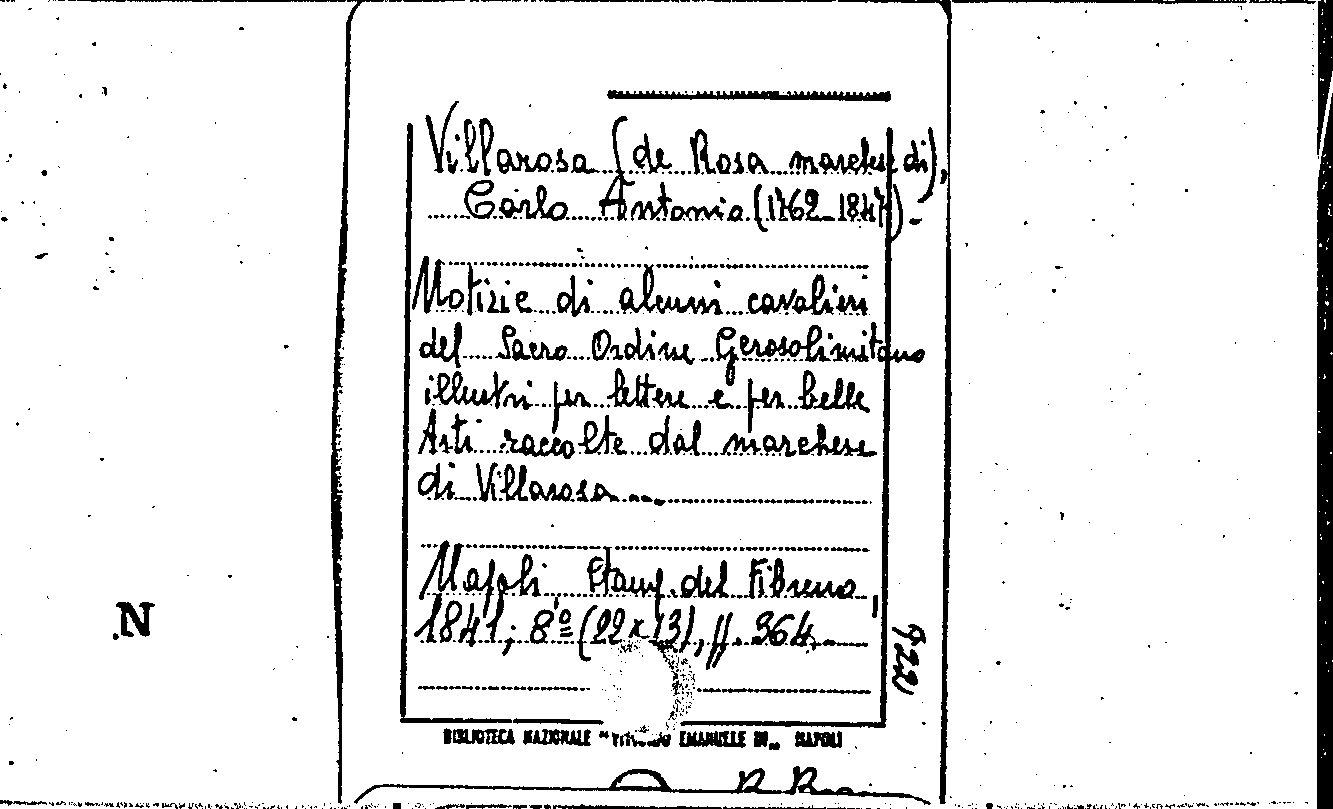 Villarosa (de Rosa marchese di),
Carlo Antonio (1762-1847).-
Notizie di alcuni cavalieri
del Sacro Ordine Gerosolimitano
illustri per lettere e per belle
Arti raccolte dal marchese
di Villarosa...
Napoli Stamp. del Fibreno,
1841; 8º (22x13), pp. 364.-
N
BIBLIOTECA NAZIONALE "VITTORIO EMANUELE III" NAPOLI